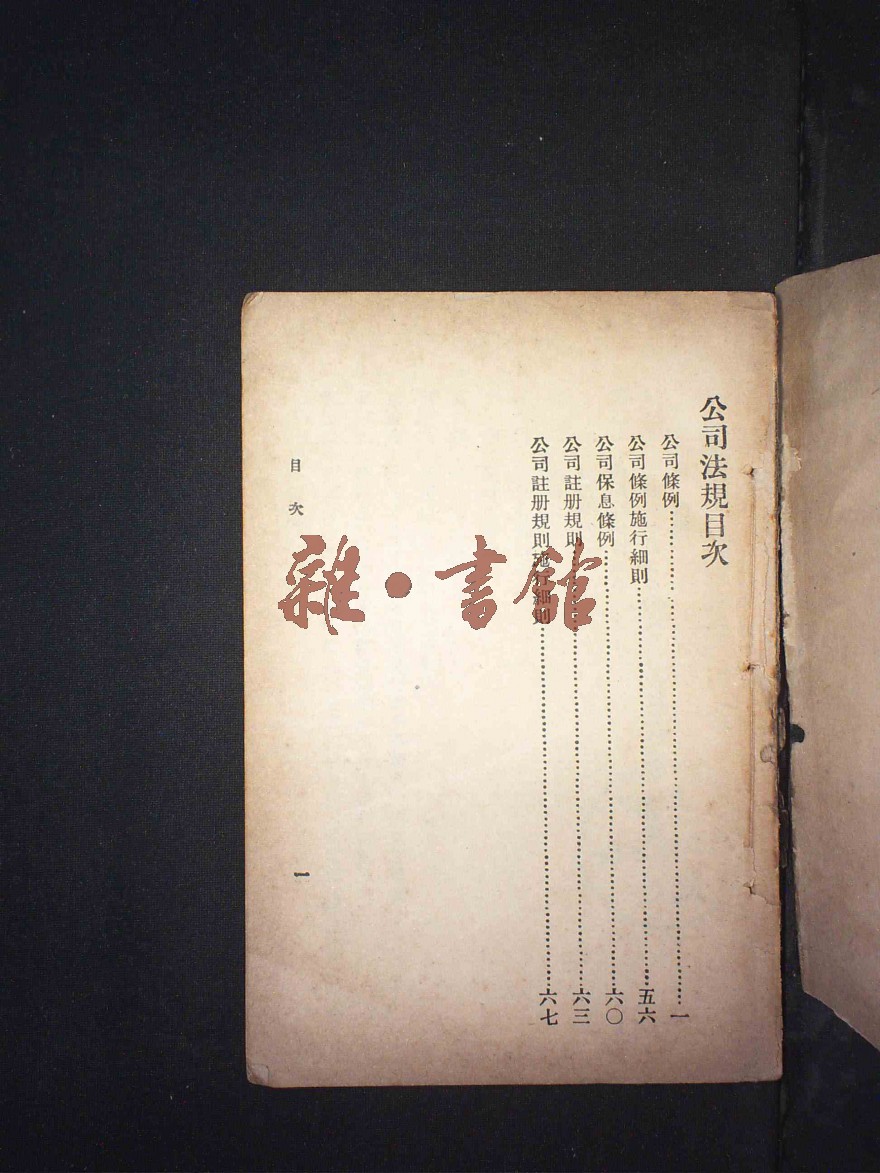 公司法規目次
公司條例……一
公司條例施行細則……五六
公司保息條例……六〇
公司註册規則……六三
公司註册規則施行細則……六七
目次
一
雜·書館